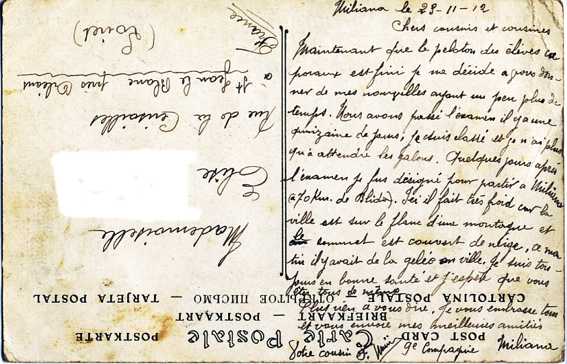 Miliana le 29-11-12
Chers cousins et cousines
Maintenant que le peloton des élèves ca
poraux est fini je me décide a vous don
ner de mes nouvelles ayant un peu plus de
temps. Nous avons passé l'examen il y a une
quinzaine de jours, je suis classé et je n'ai plus
qu'à attendre les galons. Quelques jours après
l'examen je fus désigné pour partir à Miliana
(a 70 Km. de Blida). Ici il fait très froid car la
ville est sur le flanc d'une montagne et
le sommet est couvert de neige, ce ma
tin il y avait de la gelée en ville. Je suis tou
jours en bonne santé et j'espère que vous
êtes tous de même
Plus rien a vous dire, je vous embrasse tous
et vous envoie mes meilleures amitiés
Votre cousin
9e Compagnie Miliana
Mademoiselle
Elise
Rue de la
à St Jean le Blanc près Orléans
(Loiret)
France
Carte Postale
POST CARD
POSTKARTE
BRIEFKAART — POSTKAART
CARTOLINA POSTALE — ОТКРЫТОЕ ПИСЬМО — TARJETA POSTAL